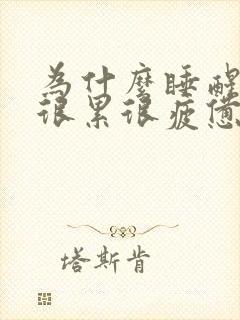 為什麼睡醒
很累很疲憊
塔斯肯